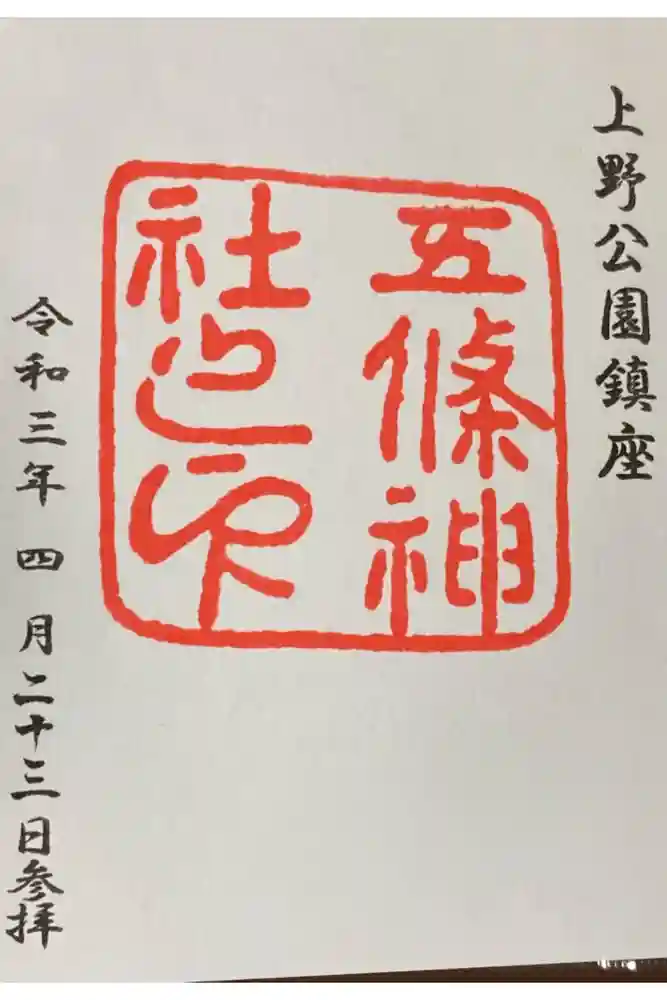 上野公園鎮座
五條神
社之印
令和三年 四 月二十三日参拝